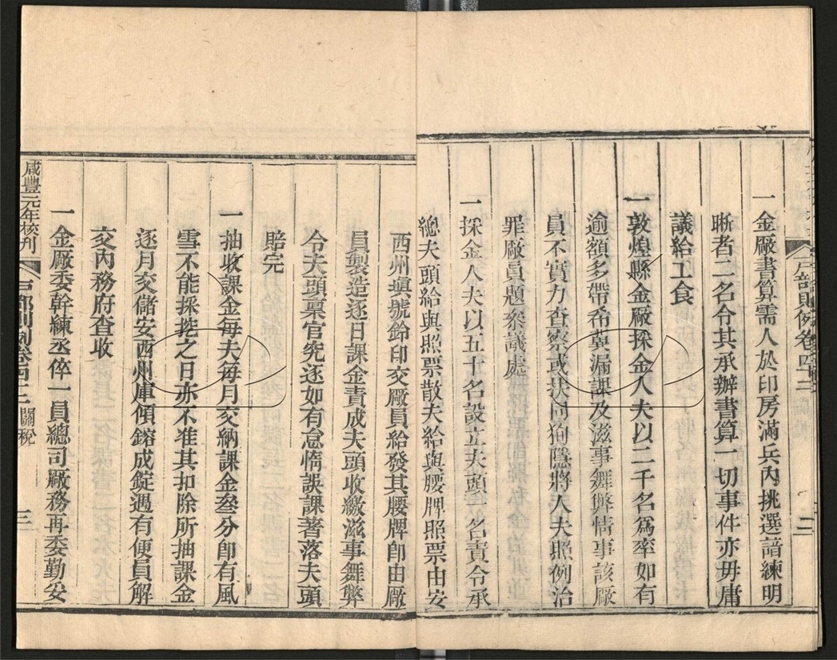 一金廠書算需人於印房滿兵內挑選諳練明
晰者二名令其承辦書算一切事件亦毋庸
議給工食
一敦煌縣金廠採金人夫以二千名爲率如有
逾額多帶希冀漏課及滋事舞弊情事該廠
員不實力查察或扶同狥隱將人夫照例治
罪廠員題叅議處
一採金人夫以五十名設立夫頭一名責令承
總夫頭給與照票散夫給與腰牌照票由安
西州塡號鈐印交廠員給發其腰牌卽由廠
員製造逐日課金責成夫頭收繳滋事舞弊
令夫頭稟官究逐如有怠惰誤課著落夫頭
賠完
一抽收課金每夫每月交納課金叄分卽有風
雪不能採挖之日亦不准其扣除所抽課金
逐月交儲安西州庫傾鎔成錠遇有便員解
交內務府查收
一金廠委幹練丞倅一員總司廠務再委勤妥
咸豐元年校刋
戶部則例卷四十二 關稅
三